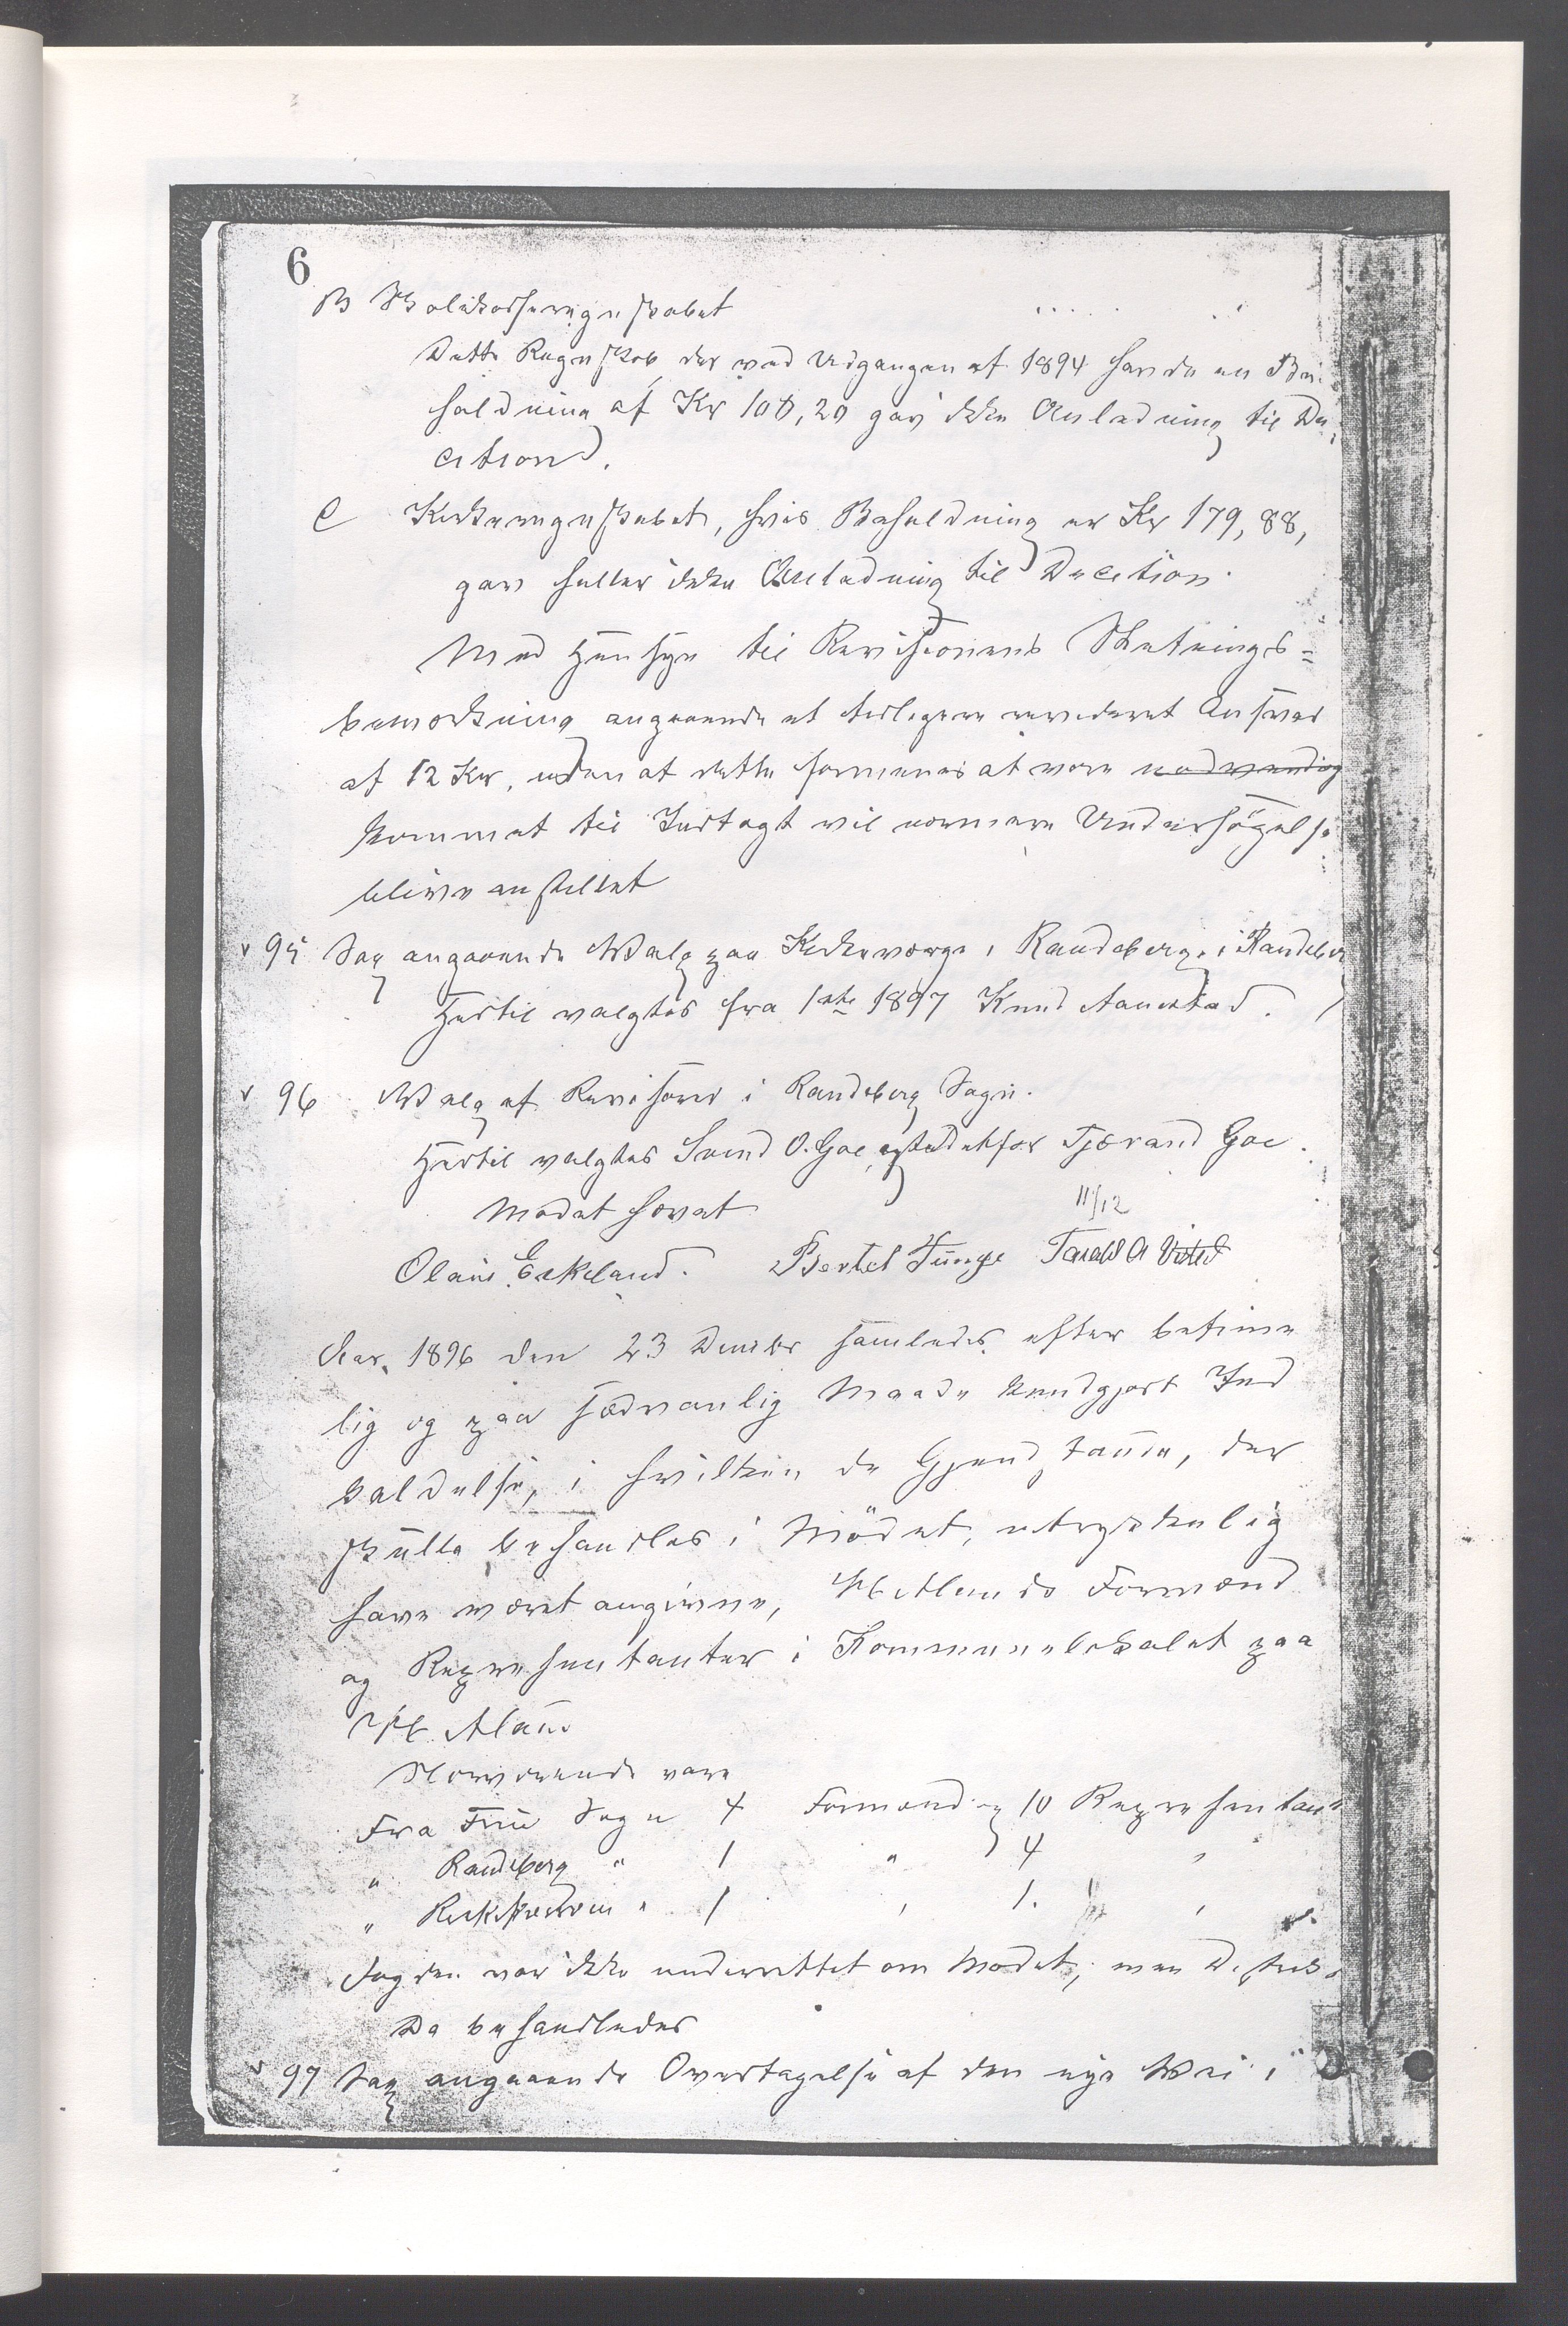 6
B Skolekasseregnskabet
Dette Regnskab, der ved Udgangen af 1894 havde en Be-
holdning af Kr 108,20 gav ikke Anledning til De-
cition.
C Kirkeregnskabet, hvis Beholdning er Kr 179,88,
gav heller ikke Anledning til Decition.
Med Hensyn til Revisionens Slutnings=
bemærkning angaaende et tidligere revideret Ansvar
af 12 Kr, uden at dette formenes at være nødvendig
kommet til Indtægt vil nærmere Undersögelse
blive anstillet
v 95 Sag angaaende Valg paa Kirkeværge i Randeberg i Randeberg
Hertil valgtes fra 1ste 1897 Knud Aanestad.
v 96 Valg af Revisorer i Randeberg Sogn.
Hertil valgtes Svend O. Goe istedetfor Tjærand Goe.
Mødet hævet
11/12
Olaus Eskeland. Bertel Tunge Tarald A Visted
Aar 1896 den 23 Decmbr samledes efter betime
lig og paa sædvanlig Maade kundgjort Ind
kaldelse, i hvilken de Gjenstande, der
skulle behandles i Mödet, udtrykkelig
have været angivne, Hetlands Formænd
og Repræsentanter i Kommunelokalet paa
Nærværende vare
Fra Frue Sogn 4 Formænd og 10 Repræsentant
" Randeberg " 1 " 4 "
" 1 " 1. "
Fogden var ikke underrettet om Mødet, men
Da behandledes
v 97 Sag angaaende Overtagelse af den nye Vei i